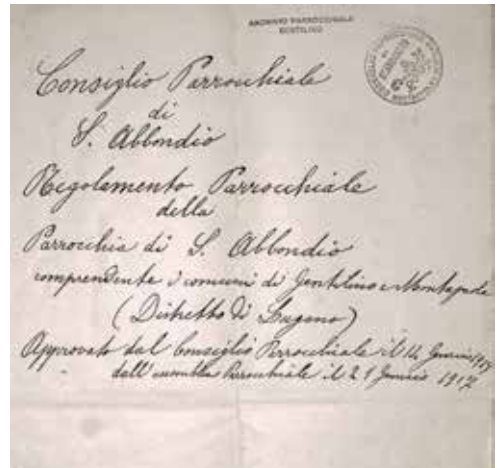 ARCHIVIO PARROCCHIALE
GENTILINO
Consiglio Parrocchiale
di
S. Abbondio
Regolamento Parrocchiale
della
Parrocchia di S. Abbondio
comprendente i comuni di Gentilino e Montagnola
(Distretto di Lugano)
Approvato dal Consiglio Parrocchiale il 14 Gennaio 1917
dall'assemblea Parrocchiale il 21 Gennaio 1917